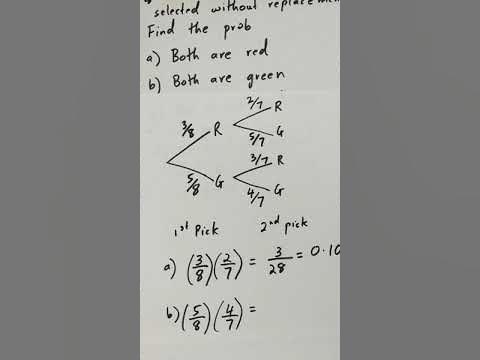 selected without replacement
Find the prob
a) Both are red
b) Both are green
2/7 R
3/8 R
5/7 G
3/7 R
5/8 G
4/7 G
1st Pick 2nd pick
a) (3/8)(2/7) = 3/28 = 0.10
b) (5/8)(4/7) =